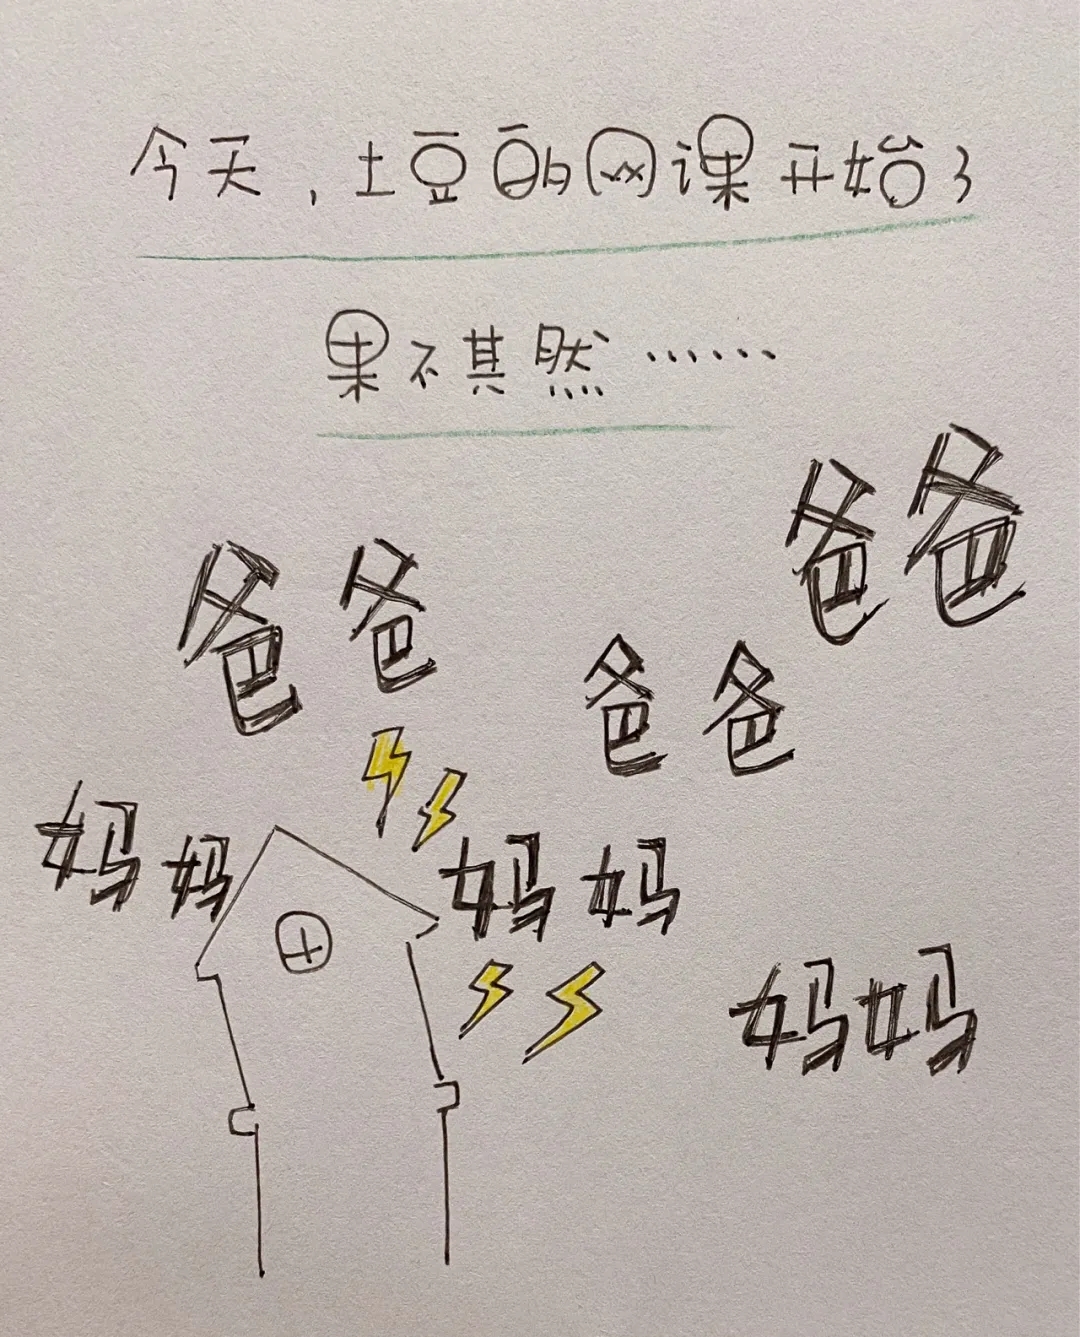 今天，土豆的网课开始了
果不其然……
爸爸
爸爸
爸爸
妈妈
妈妈
妈妈